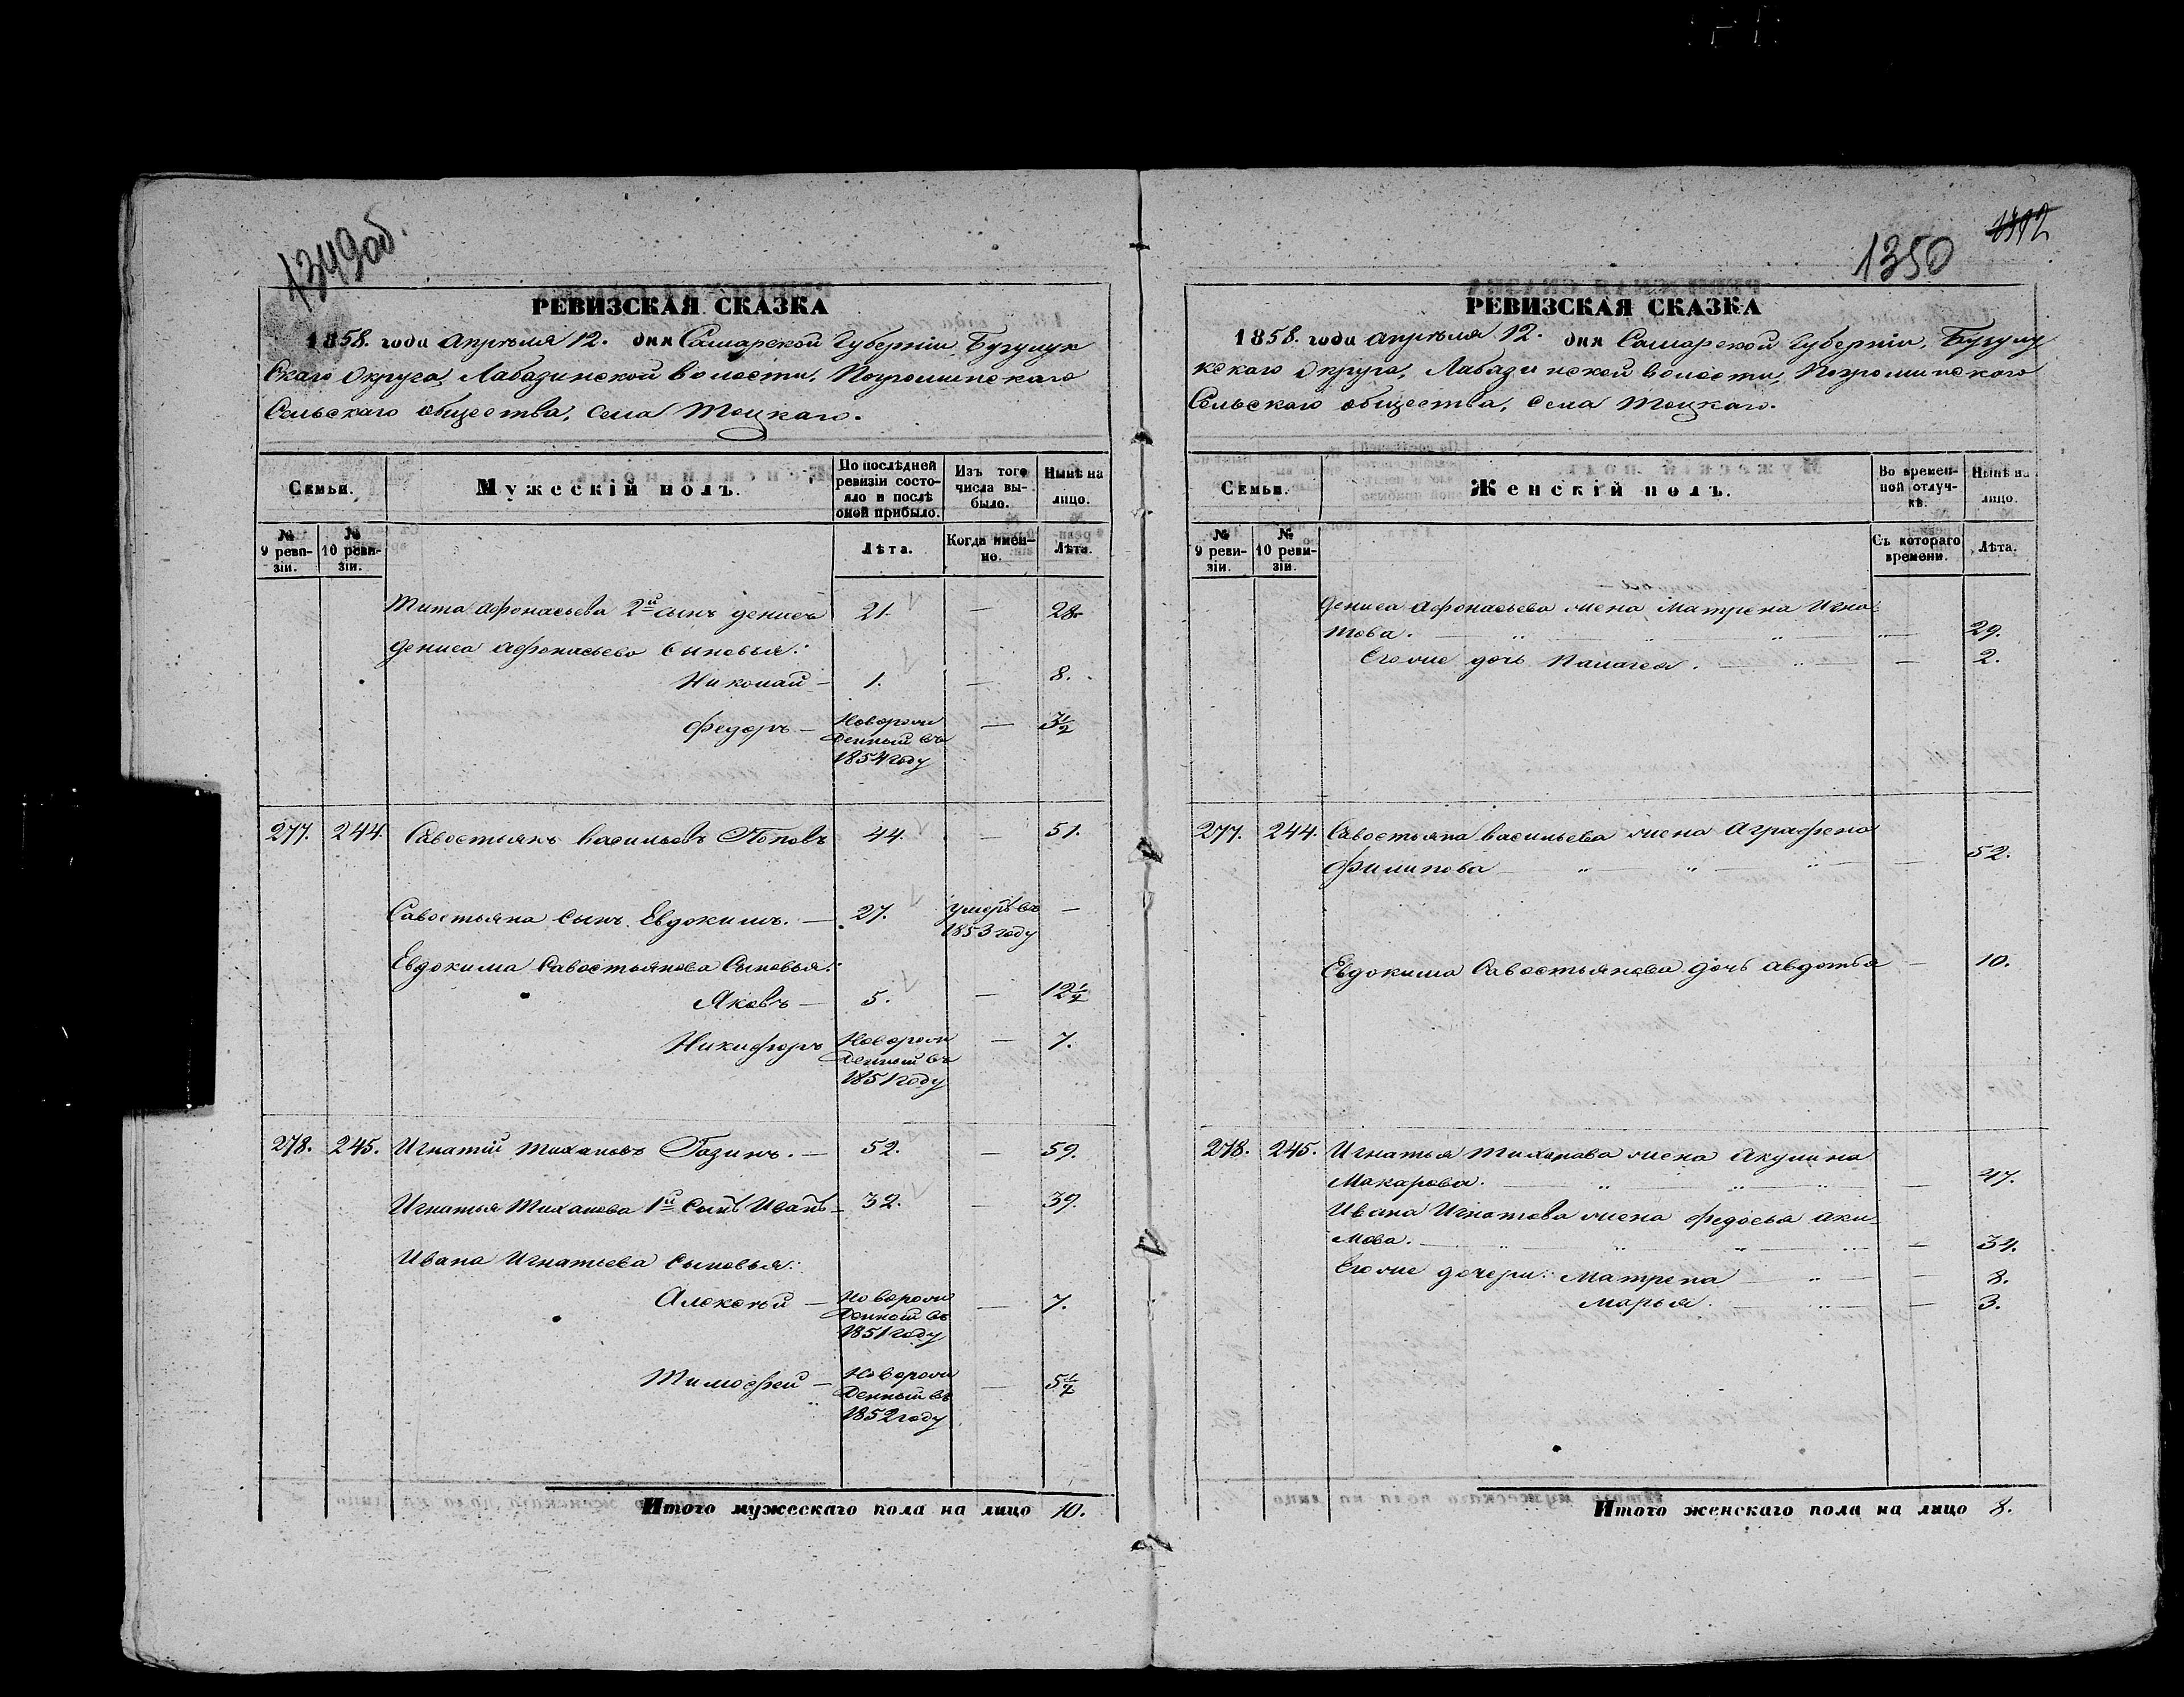 1349об.
РЕВИЗСКАЯ СКАЗКА
1858. года Апрѣля 12. дня Самарской Губерніи, Бузулук
скаго Округа, Лабазинской волости, Погроминскаго
Сельскаго общества, села Тоцкаго.
Семьи.
Мужескій полъ.
По послѣдней ревизіи состояло и послѣ оной прибыло.
Изъ того числа выбыло.
Нынѣ на лицо.
№ 9 ревизіи.
№ 10 ревизіи.
Лѣта.
Когда именно.
Лѣта.
Тита Афонасьева 2й сынъ Денисъ 21. — 28.
Дениса Афонасьева сыновья:
Николай — 1. — 8.
Федоръ — Новорожденный въ 1854 году — 3½
277. 244. Савостьянъ Васильевъ Поповъ 44. — 51.
Савостьяна сынъ Евдокимъ. — 27. Умеръ въ 1853 году —
Евдокима Савостьянова Сыновья:
Яковъ — 5. — 12½
Никифоръ Новорожденный въ 1851 году — 7.
278. 245. Игнатій Тихановъ Газинъ. — 52. — 59.
Игнатья Тиханова 1й Сынъ Иванъ — 32. — 39.
Ивана Игнатьева Сыновья:
Алексѣй — Новорожденной въ 1851 году — 7.
Тимофей — Новорожденный въ 1852 году — 5½
Итого мужескаго пола на лицо 10.
1350
РЕВИЗСКАЯ СКАЗКА
1858. года Апрѣля 12. дня Самарской Губерніи, Бузулу
кскаго Округа, Лабазинской волости, Погроминскаго
Сельскаго общества, села Тоцкаго.
Семьи.
Женскій полъ.
Во временной отлучкѣ.
Нынѣ на лицо.
№ 9 ревизіи.
№ 10 ревизіи.
Съ котораго времени.
Лѣта.
Дениса Афонасьева жена Матрена Игна-
това. — 29.
Его же дочь Палагея. — 2.
277. 244. Савостьяна Васильева жена Аграфена
Филипова — 52.
Евдокима Савостьянова дочь Авдотья — 10.
278. 245. Игнатья Тиханова жена Акулина
Макарова. — 47.
Ивана Игнатова жена Федосья Аки-
мова. — 34.
Его же дочери: Матрена — 8.
Марья. — 3.
Итого женскаго пола на лицо 8.